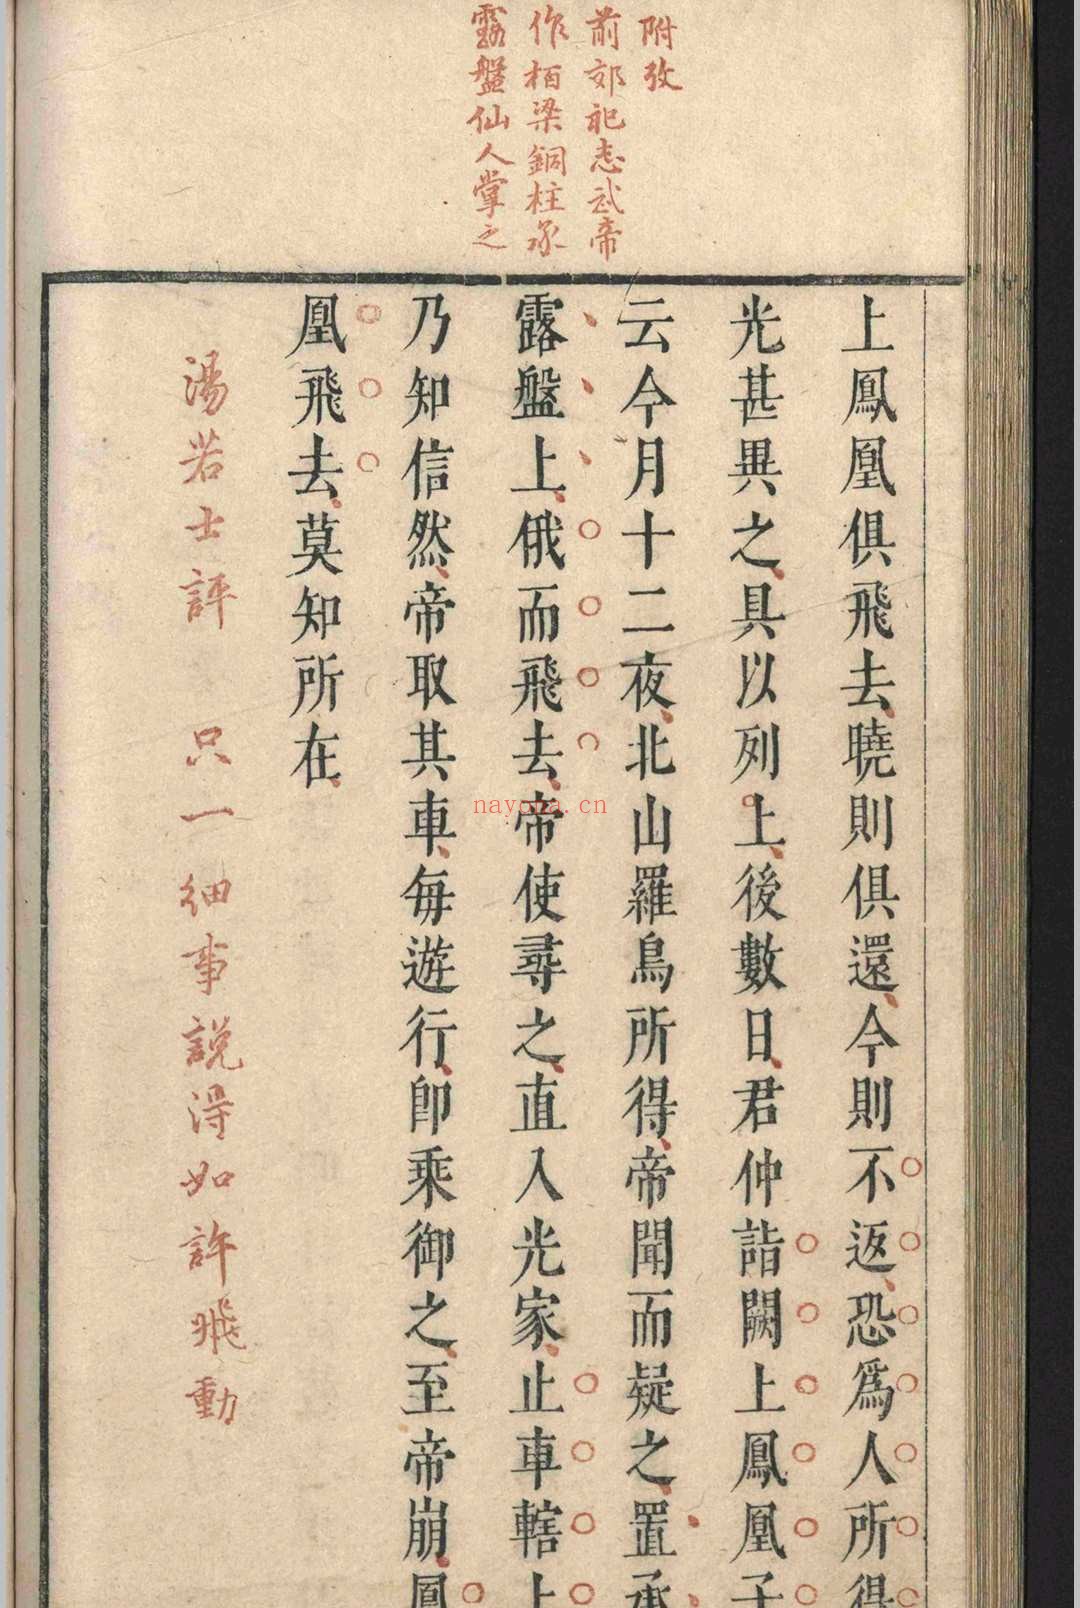 附攷
前郊祀志武帝
作栢梁銅柱承
露盤仙人掌之
上鳳凰俱飛去曉則俱還今則不返恐爲人所得
光甚異之具以列上後數日君仲詣闕上鳳凰子
云今月十二夜北山羅鳥所得帝聞而疑之置承
露盤上俄而飛去帝使尋之直入光家止車轄上
乃知信然帝取其車每遊行卽乘御之至帝崩鳳
凰飛去莫知所在
湯若士評 只一細事說得如許飛動
nayona.cn